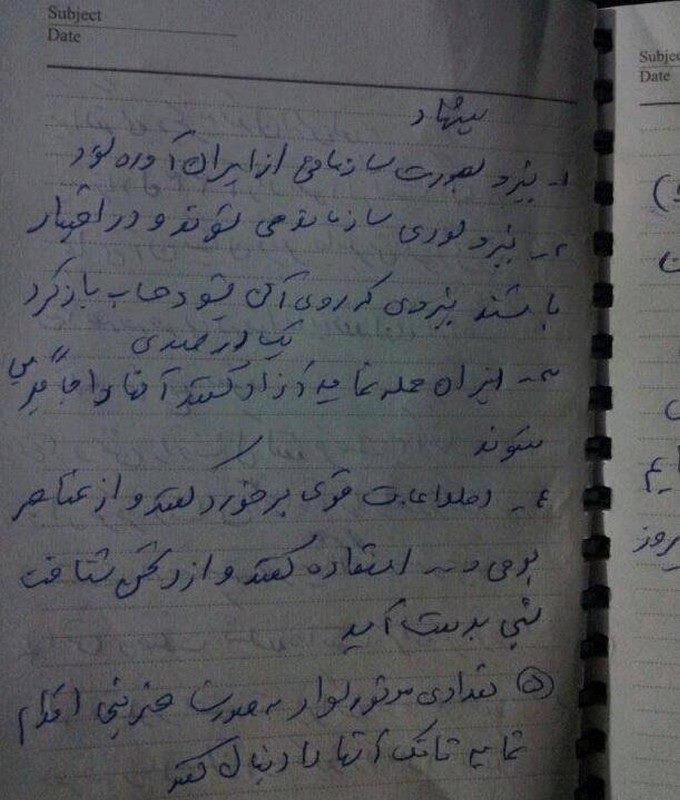 Subject
Date
پیشنهاد
۱- نیرو بصورت سازمانی از ایران آورده شود
۲- نیرو سوری سازماندهی شوند و در اختیار
باشند نیروی که روی آن میشود حساب باز کرد
۳- ایران حمله نماید آزاد کنند آنها
میشوند
۴- اطلاعات قوی برخورد کنند و از عناصر
بومی استفاده کنند و از دشمن شناخت
نسبی بدست آید
۵ تعدادی موتور سوار به صورت ضربتی اقدام
نماید تا تک آنها را دنبال کنند
Subject
Date